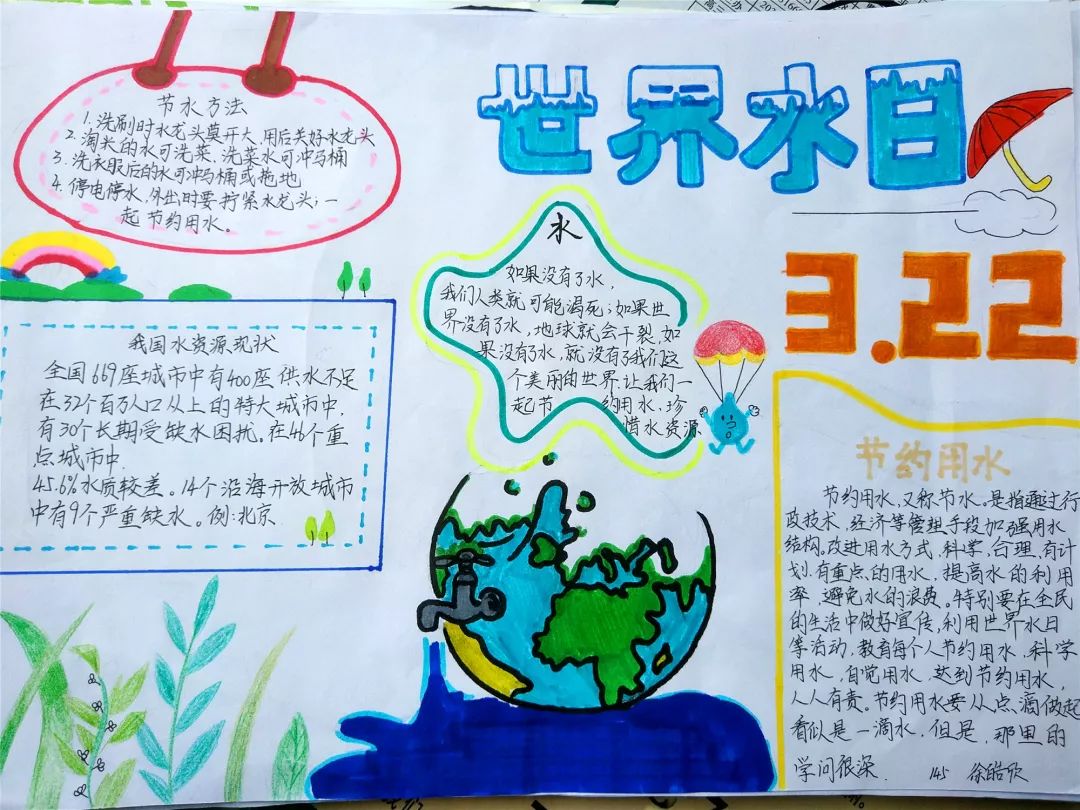 世界水日
3.22
节水方法
1.洗刷时水龙头莫开大,用后关好水龙头
2.淘米的水可洗菜,洗菜水可冲马桶
3.洗衣服后的水可冲马桶或拖地
4.停电停水,外出时要拧紧水龙头;一
起节约用水。
我国水资源现状
全国669座城市中有400座供水不足
在32个百万人口以上的特大城市中,
有30个长期受缺水困扰。在46个重
点城市中
45.6%水质较差。14个沿海开放城市
中有9个严重缺水。例:北京
水
如果没有了水,
我们人类就可能渴死;如果世
界没有了水,地球就会干裂,如
果没有了水,就没有了我们这
个美丽的世界.让我们一
起节约用水,珍
惜水资源
节约用水
节约用水,又称节水。是指通过行
政技术,经济等管理手段加强用水
结构。改进用水方式,科学,合理,有计
划,有重点的用水,提高水的利用
率,避免水的浪费。特别要在全民
的生活中做好宣传,利用世界水日
等活动,教育每个人节约用水,科学
用水,自觉用水,达到节约用水,
人人有责。节约用水要从点滴做起
看似是一滴水,但是,那里的
学问很深.
145 徐皓欣